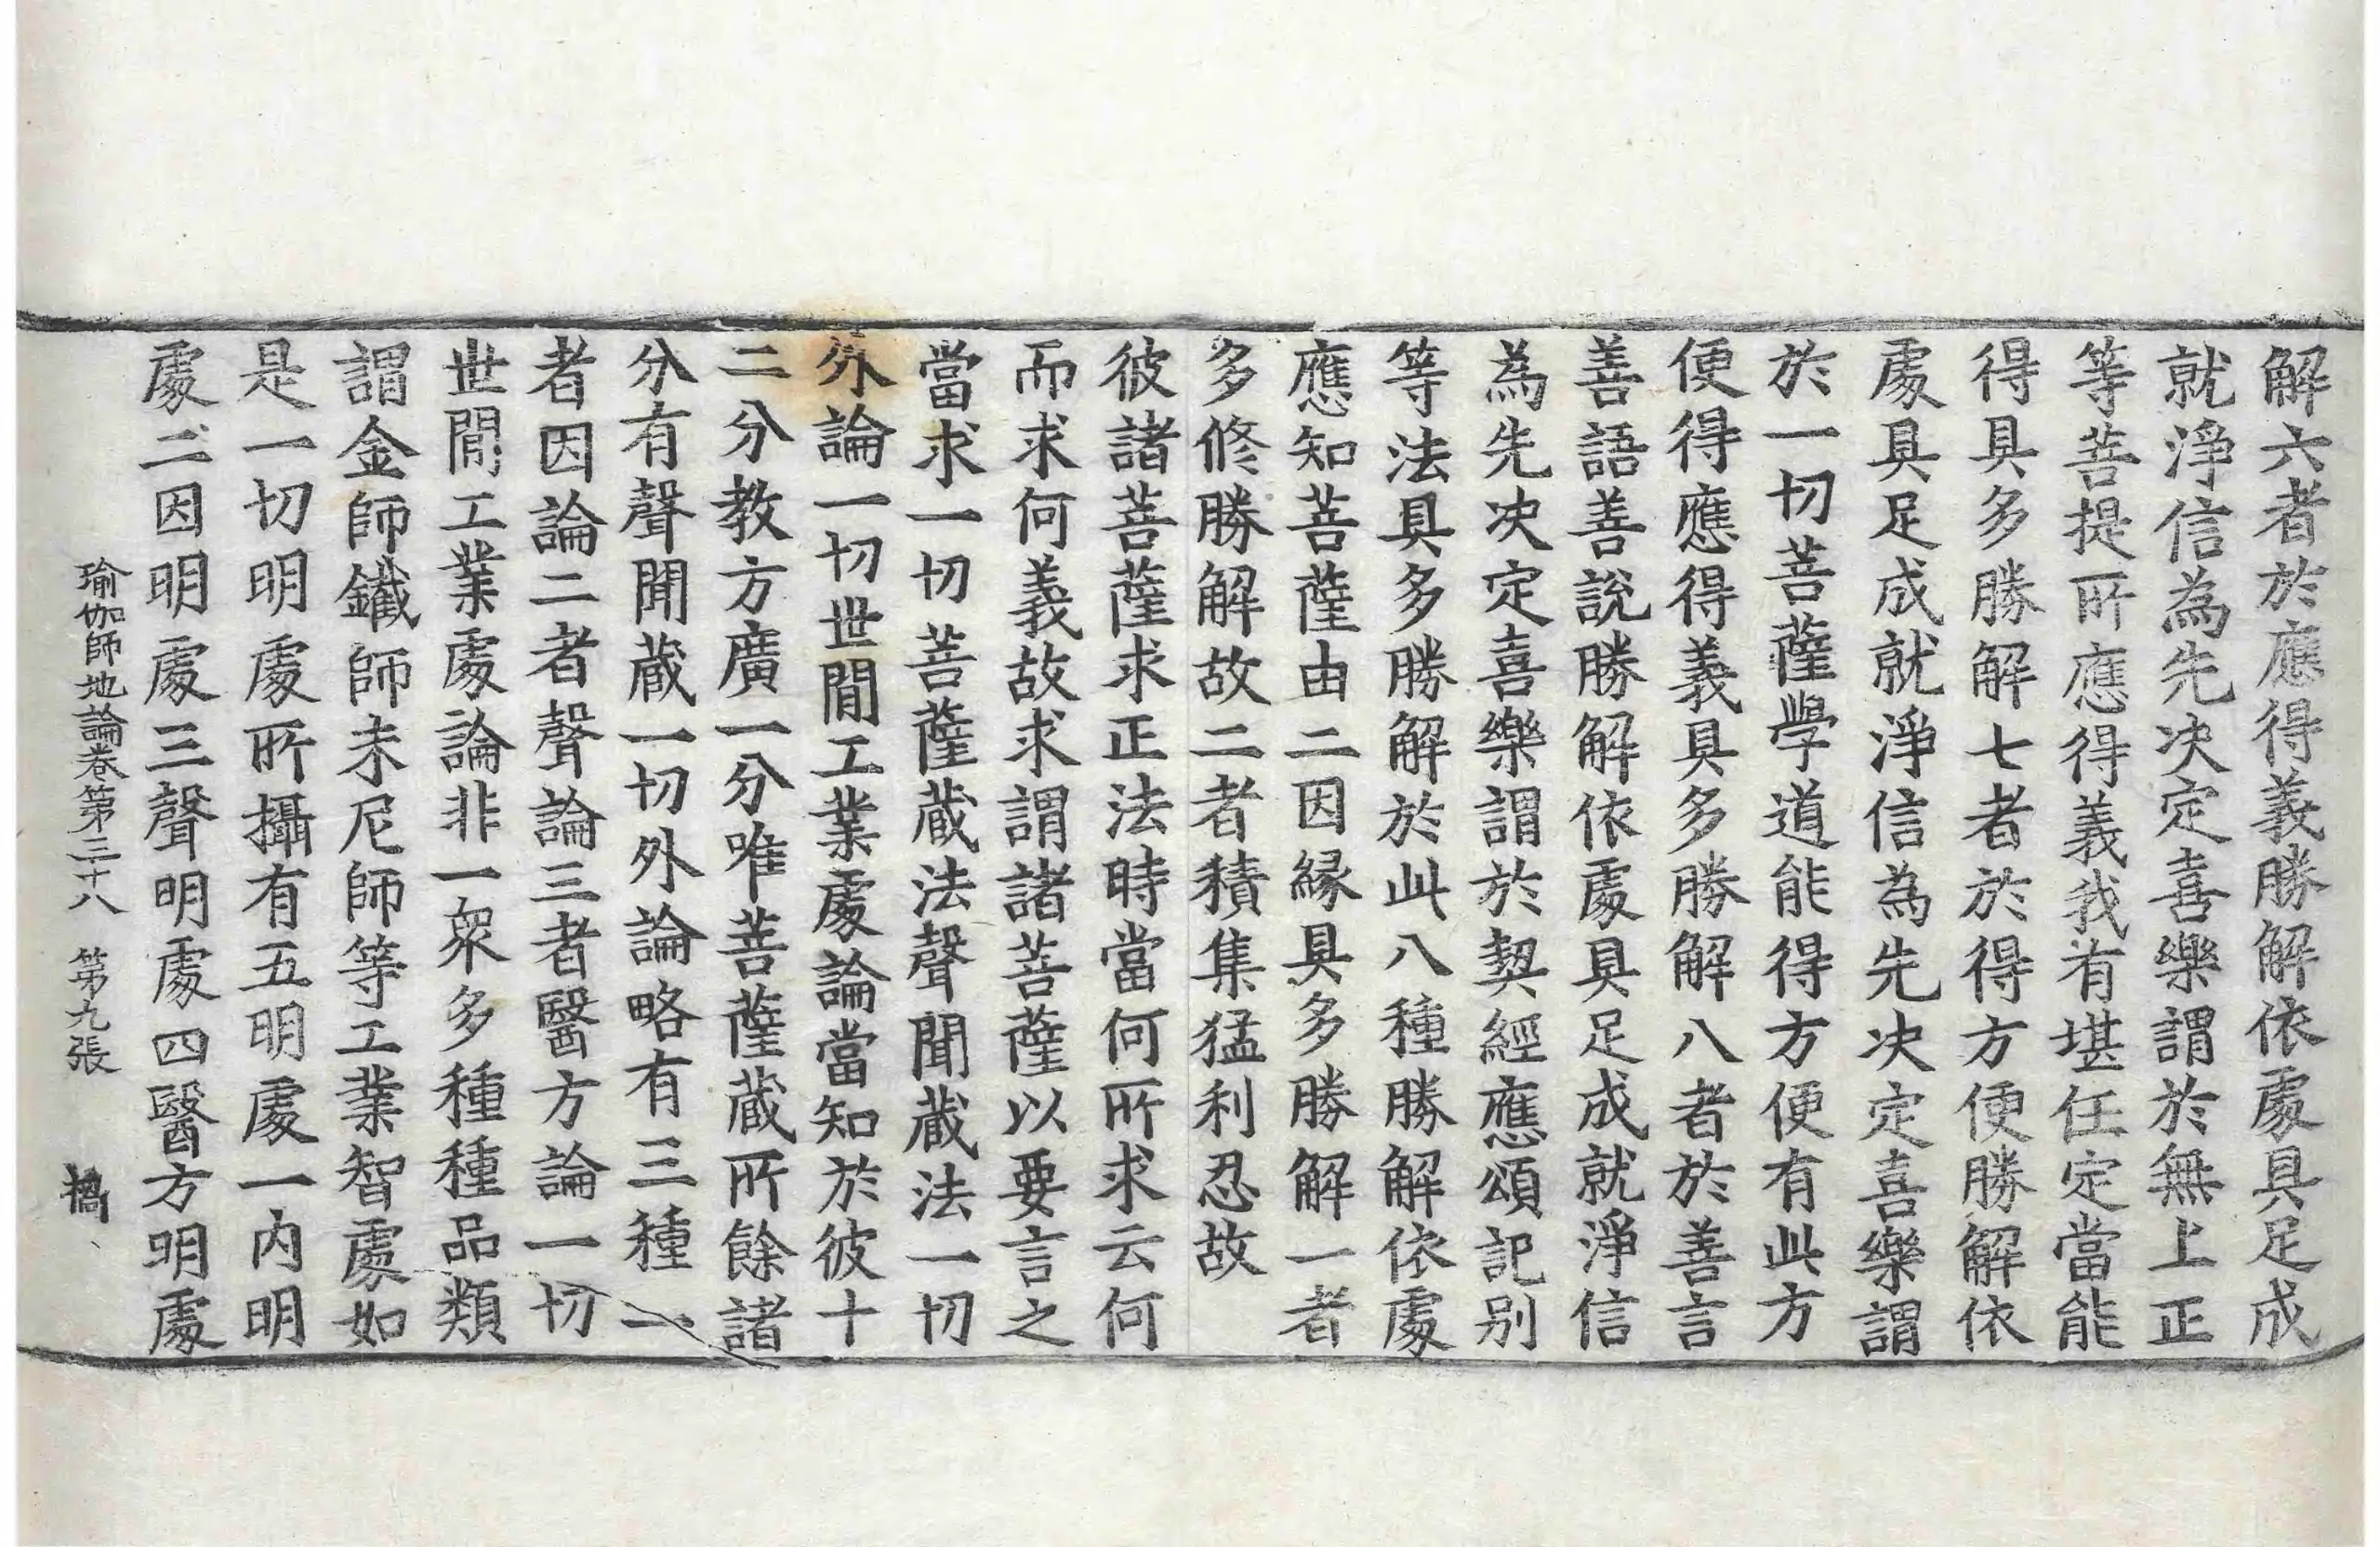 解六者於應得義勝解依處具足成
就淨信為先决定喜樂謂於無上正
等菩提所應得義我有堪任定當能
得具多勝解七者於得方便勝解依
處具足成就淨信為先决定喜樂謂
於一切菩薩學道能得方便有此方
便得應得義具多勝解八者於善言
善語善說勝解依處具足成就淨信
為先决定喜樂謂於契經應頌記別
等法具多勝解於此八種勝解依處
應知菩薩由二因縁具多勝解一者
多修勝解故二者積集猛利忍故
彼諸菩薩求正法時當何所求云何
而求何義故求謂諸菩薩以要言之
當求一切菩薩蔵法聲聞蔵法一切
外論一切世間工業處論當知於彼十
二分教方廣一分唯菩薩蔵所餘諸
分有聲聞蔵一切外論略有三種一
者因論二者聲論三者醫方論一切
世間工業處論非一衆多種種品類
謂金師鐵師末尼師等工業智處如
是一切明處所攝有五明處一內明
處二因明處三聲明處四醫方明處
瑜伽師地論卷第三十八 第九張